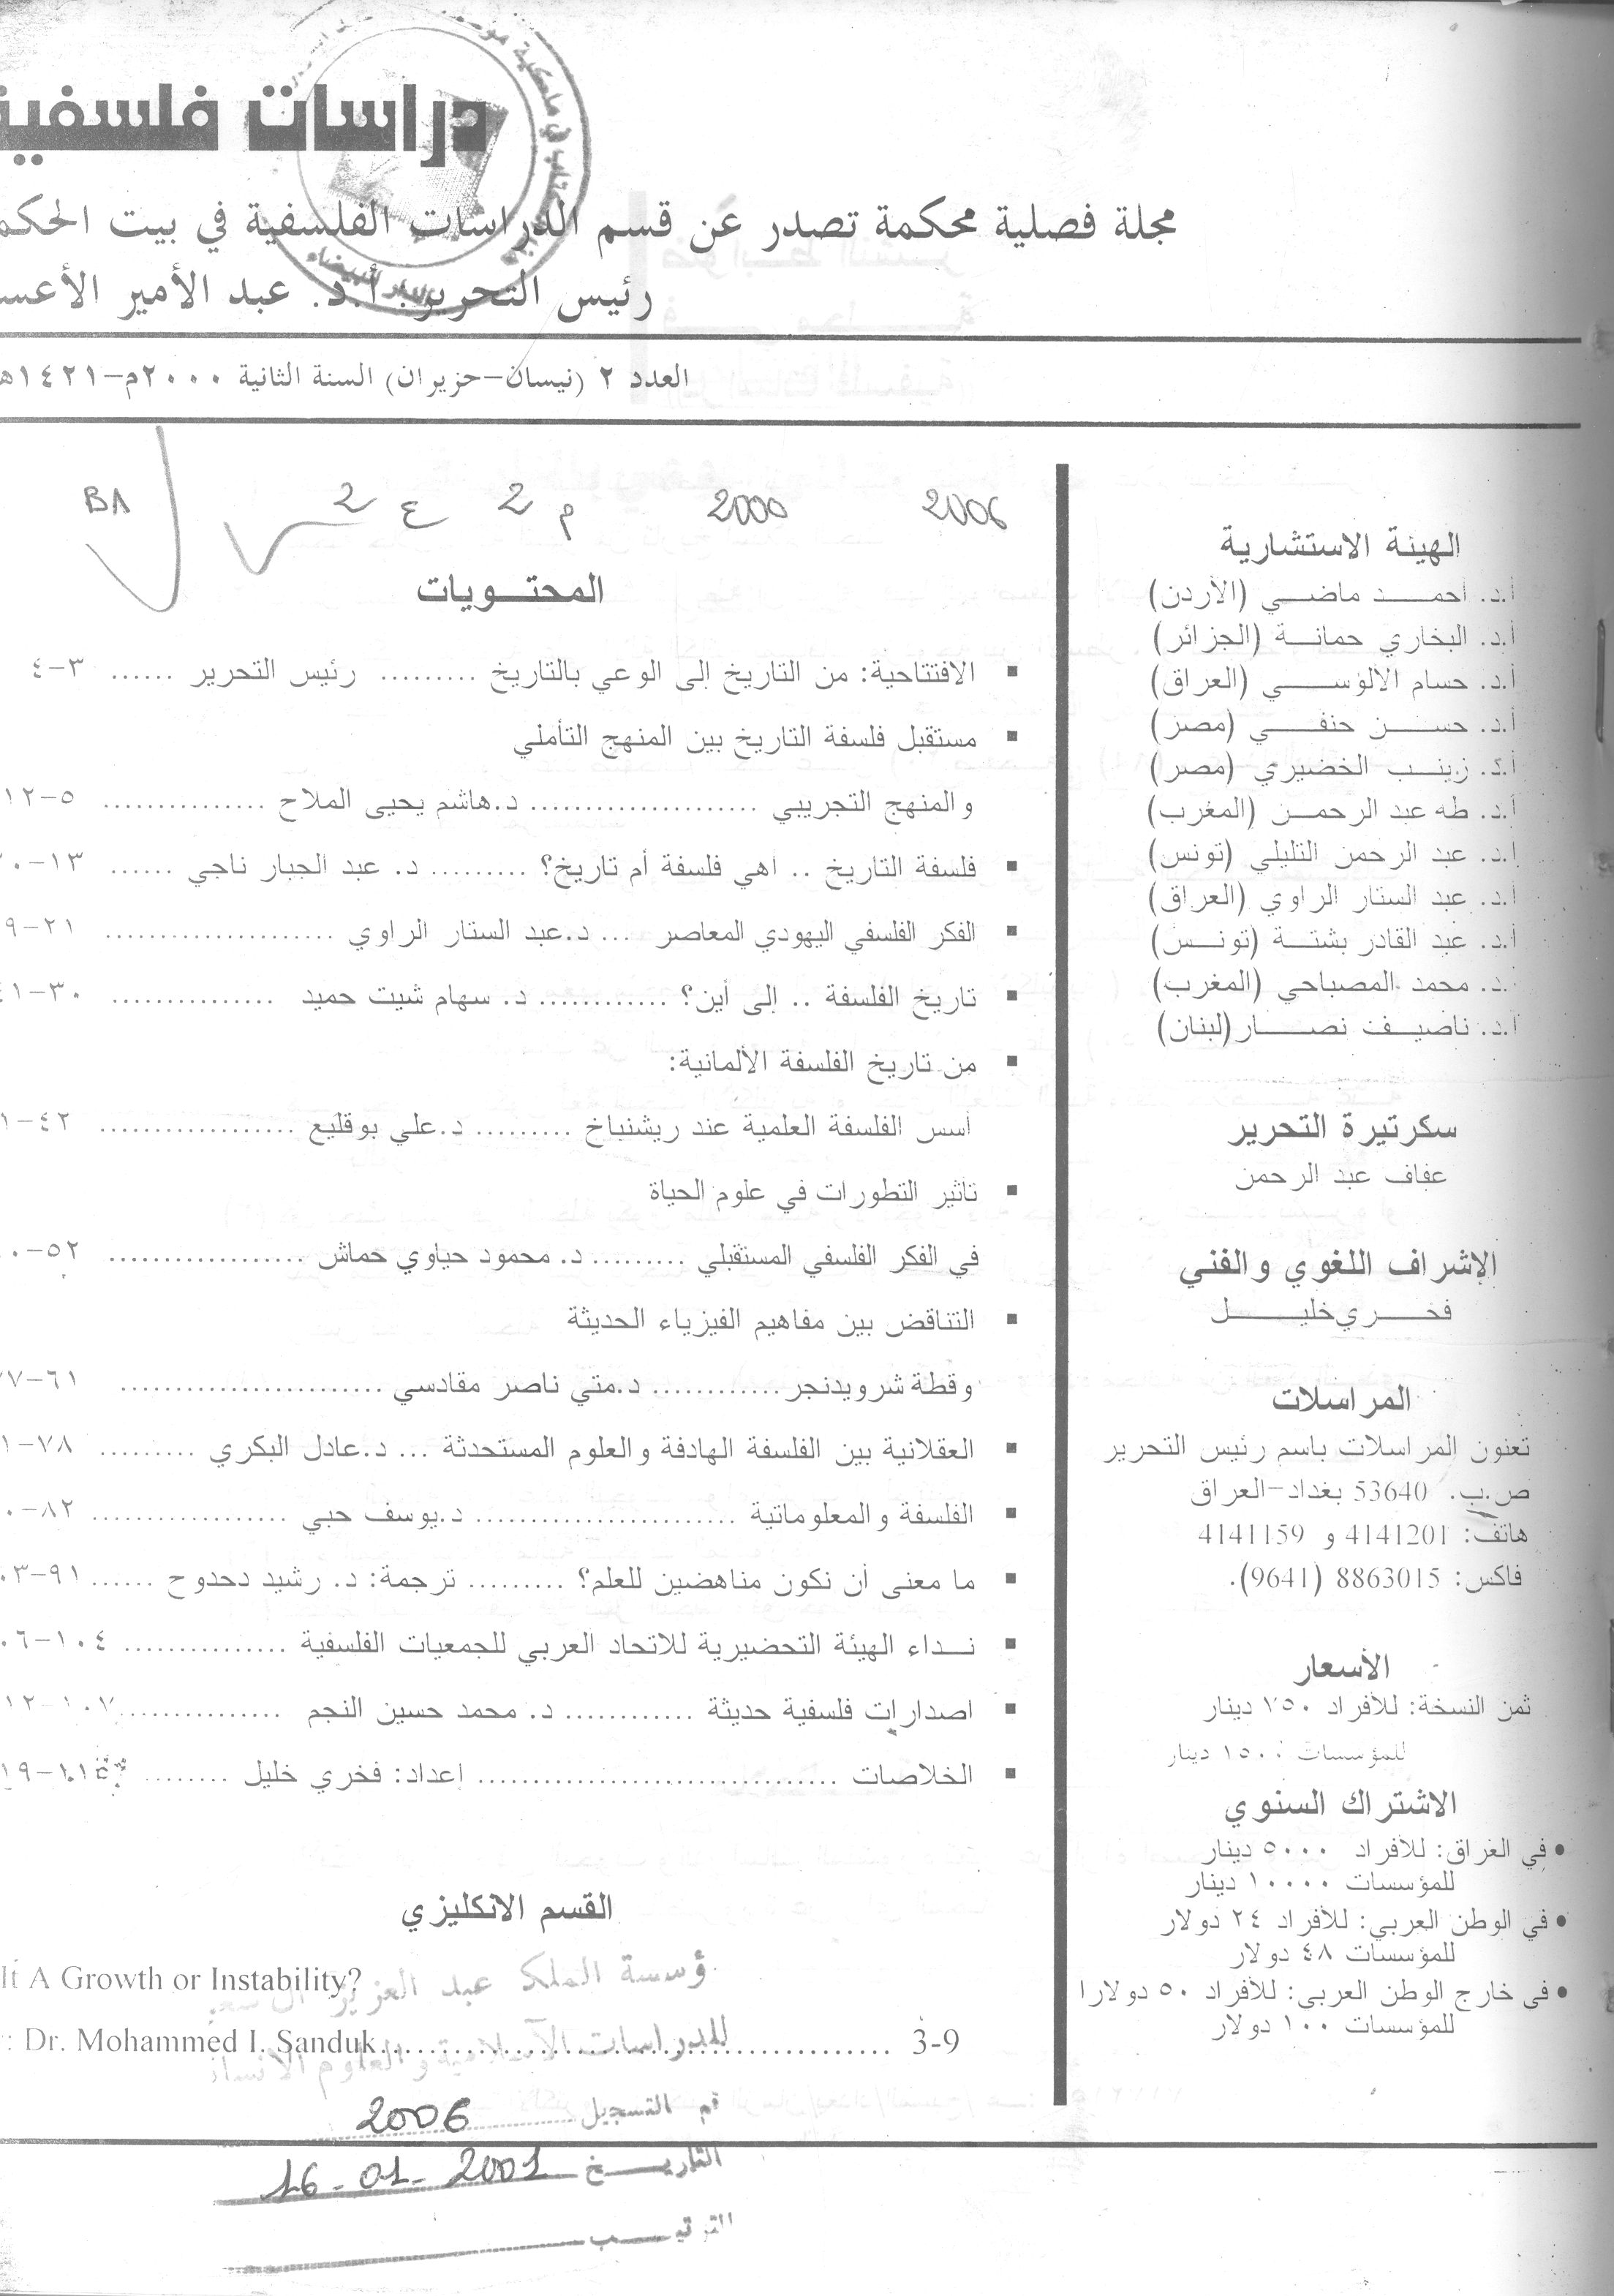 دراسات فلسفية
مجلة فصلية محكمة تصدر عن قسم الدراسات الفلسفية في بيت الحكم
رئيس التحرير: أ.د. عبد الأمير الأعس
العدد ٢ (نيسان-حزيران) السنة الثانية ٢٠٠٠م-١٤٢١ه
2006 2000 م 2 ع 2 BA
الهيئة الاستشارية
أ.د. أحمـــد ماضـــي (الأردن)
أ.د. البخاري حمانــة (الجزائر)
أ.د. حسام الآلوســـي (العراق)
أ.د. حســـن حنفـــي (مصر)
أ.د. زينــب الخضيري (مصر)
أ.د. طه عبد الرحمــن (المغرب)
أ.د. عبد الرحمن التليلي (تونس)
أ.د. عبد الستار الراوي (العراق)
أ.د. عبد القادر بشتــة (تونــس)
أ.د. محمد المصباحي (المغرب)
أ.د. ناصيــف نصــــار(لبنان)
سكرتيرة التحرير
عفاف عبد الرحمن
الإشراف اللغوي والفني
فخـــري خليــــل
المراسلات
تعنون المراسلات باسم رئيس التحرير
ص.ب. 53640 بغداد-العراق
هاتف: 4141201 و 4141159
فاكس: 8863015 (9641).
الأسعار
ثمن النسخة: للأفراد ٧٥٠ دينار
للمؤسسات ١٥٠٠ دينار
الاشتراك السنوي
• في العراق: للأفراد ٥٠٠٠ دينار
للمؤسسات ١٠٠٠٠ دينار
• في الوطن العربي: للأفراد ٢٤ دولار
للمؤسسات ٤٨ دولار
• في خارج الوطن العربي: للأفراد ٥٠ دولارا
للمؤسسات ١٠٠ دولار
المحتـــويات
▪ الافتتاحية: من التاريخ إلى الوعي بالتاريخ ......... رئيس التحرير ...... ٣-٤
▪ مستقبل فلسفة التاريخ بين المنهج التأملي
والمنهج التجريبي ...................... د.هاشم يحيى الملاح ............... ٥-١٢
▪ فلسفة التاريخ .. أهي فلسفة أم تاريخ؟ ......... د. عبد الجبار ناجي ...... ١٣-٠
▪ الفكر الفلسفي اليهودي المعاصر ... د.عبد الستار الراوي ..................... ٢١-٩
▪ تاريخ الفلسفة .. إلى أين؟ ............ د. سهام شيت حميد ............... ٣٠-٤١
▪ من تاريخ الفلسفة الألمانية:
أسس الفلسفة العلمية عند ريشنباخ ......... د.علي بوقليع .................. ٤٢-١
▪ تأثير التطورات في علوم الحياة
في الفكر الفلسفي المستقبلي ......... د. محمود حياوي حماش .................. ٥٢-٠
▪ التناقض بين مفاهيم الفيزياء الحديثة
وقطة شرويدنجر ............ د.متي ناصر مقادسي ........................ ٦١-٧٧
▪ العقلانية بين الفلسفة الهادفة والعلوم المستحدثة ... د.عادل البكري ......... ٧٨-١
▪ الفلسفة والمعلوماتية ........................ د.يوسف حبي .................. ٨٢-٠
▪ ما معنى أن نكون مناهضين للعلم؟ ......... ترجمة: د. رشيد دحدوح ...... ٩١-٠٣
▪ نــداء الهيئة التحضيرية للاتحاد العربي للجمعيات الفلسفية ............... ١٠٤-٠٦
▪ اصدارات فلسفية حديثة ............ د. محمد حسين النجم ............... ١٠٧-١٢
▪ الخلاصات ................................. اعداد: فخري خليل .........
القسم الانكليزي
It A Growth or Instability?
: Dr. Mohammed I. Sanduk............................................... 3-9
ؤسسة الملك عبد العزيز آل سعو
للدراسات الاسلامية و العلوم الانسان
قم التسجيل 2006
التاريــخ 16-01-2001
الترتيــب